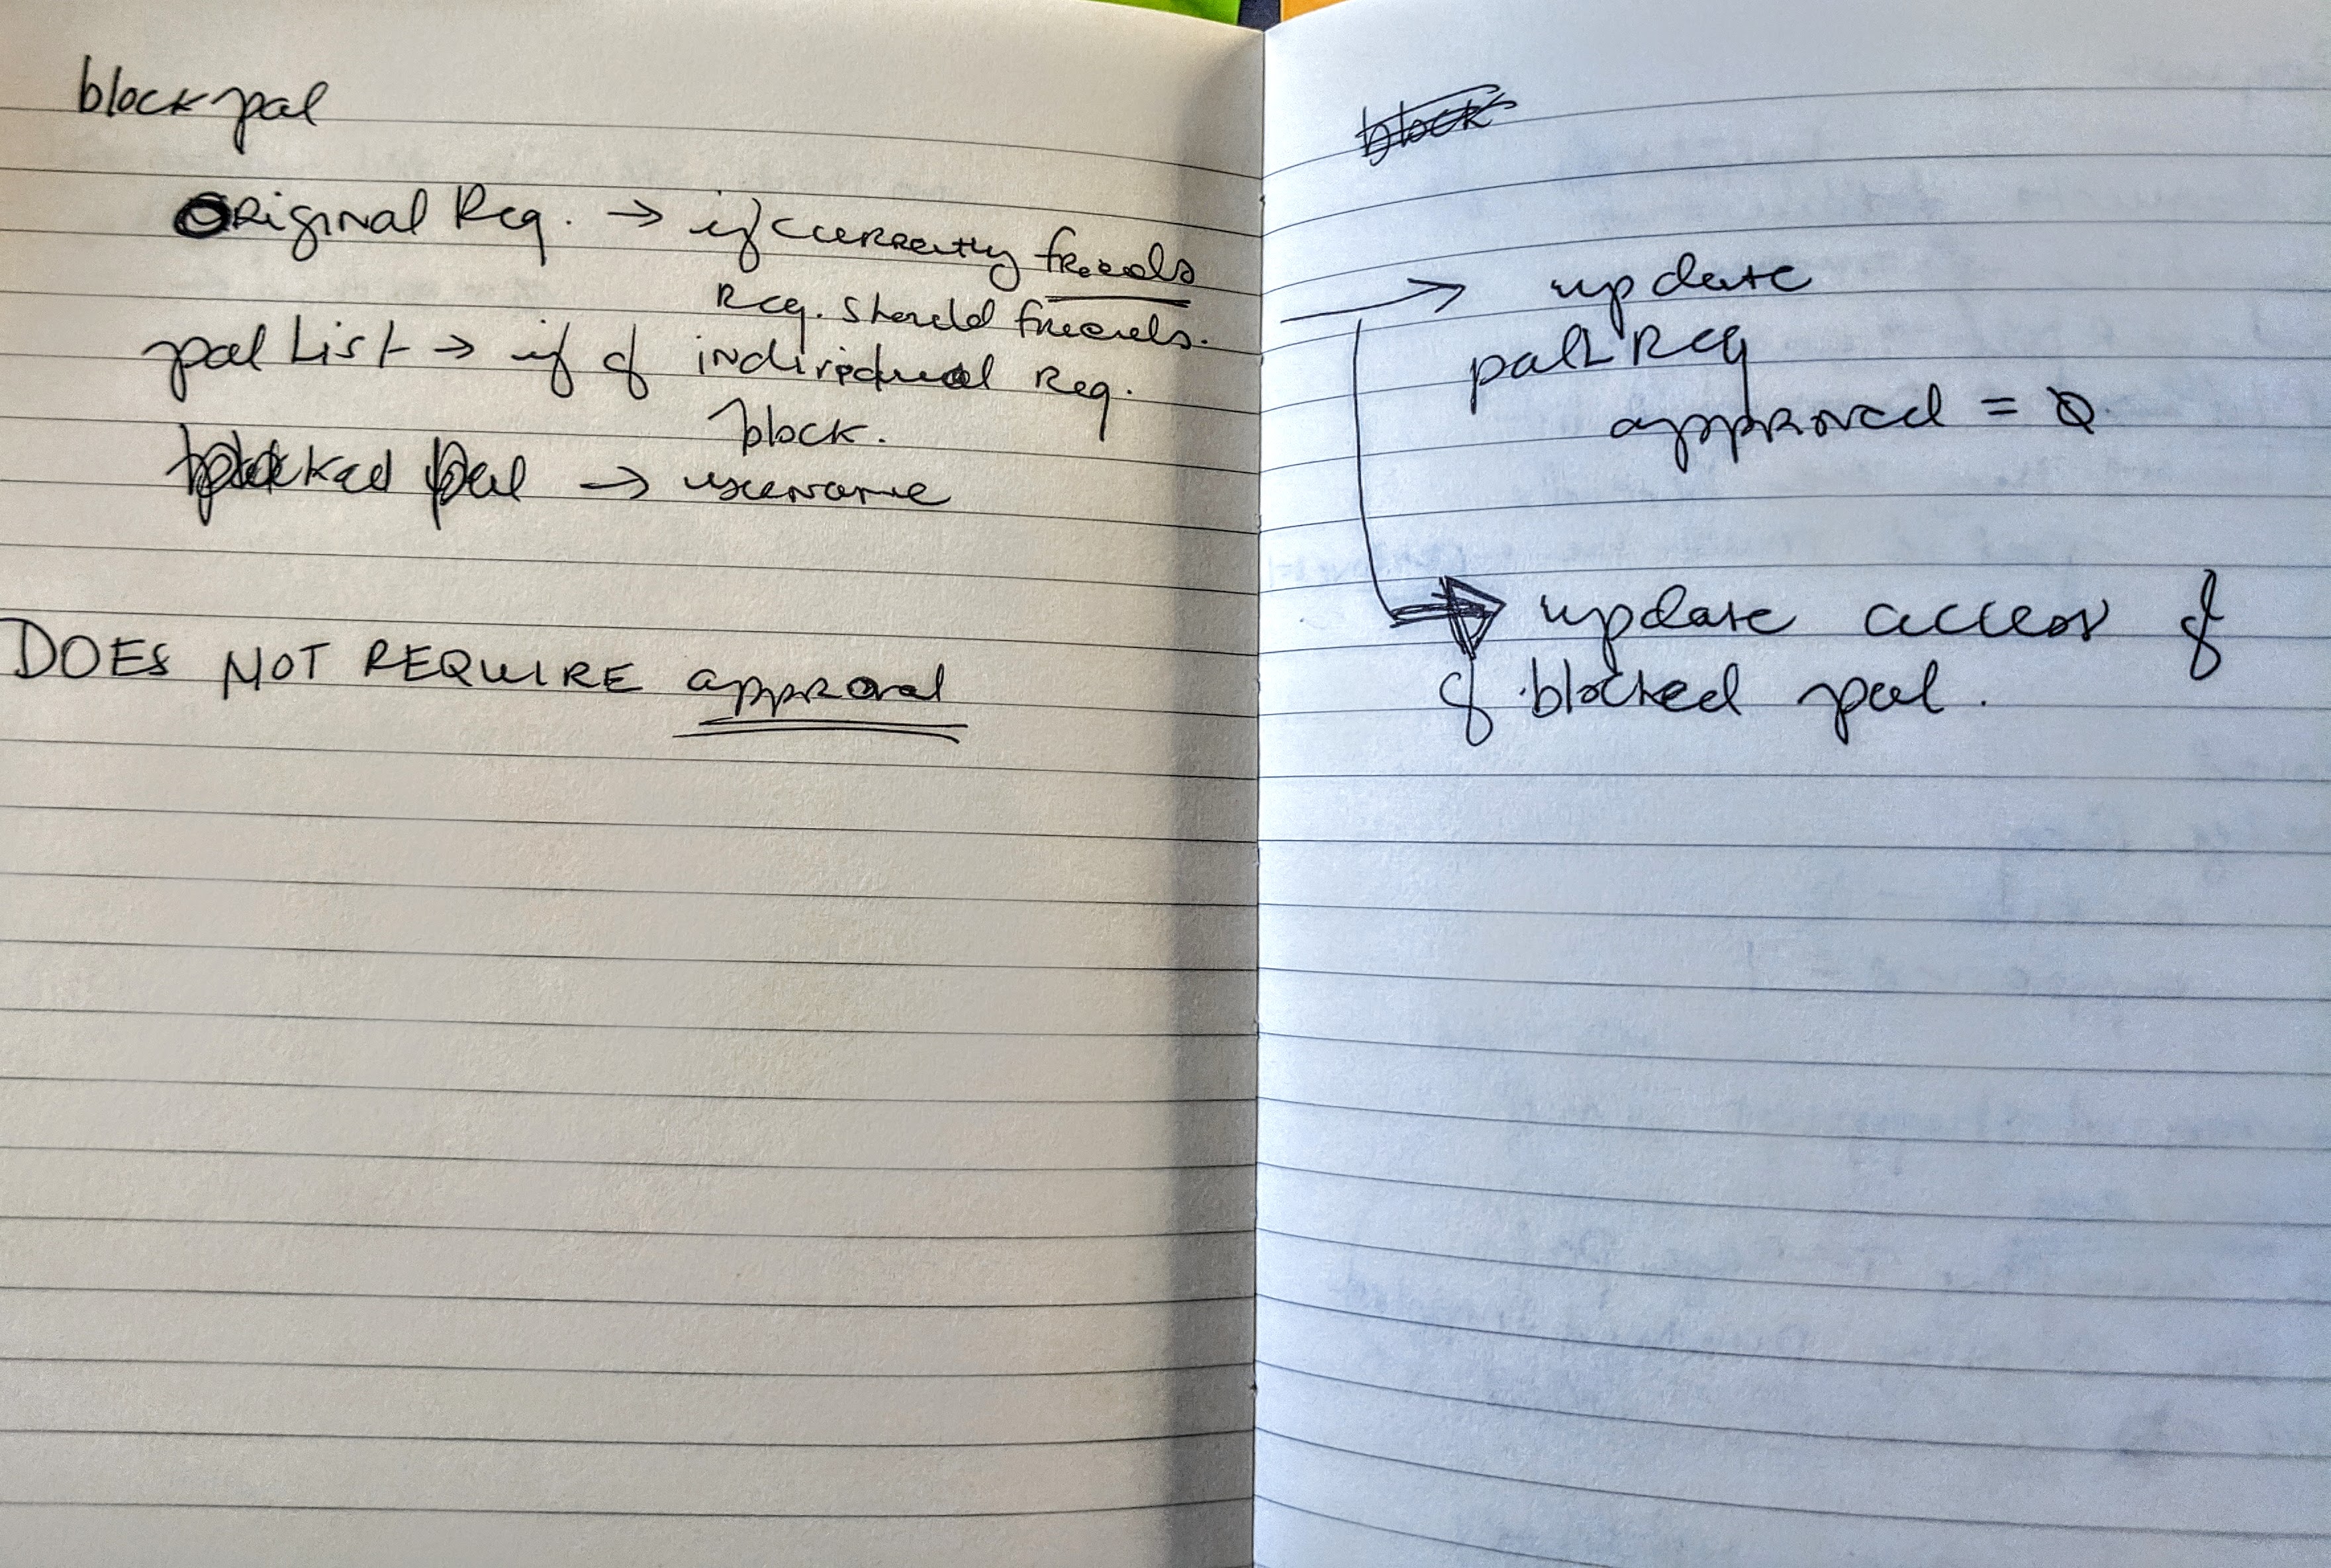 block pal
Original Req. → if currently friends
Req. should friends.
pal List → if of individual Req.
block.
blocked pal → username
DOES NOT REQUIRE approval
block
→ update
pal Req
approved = 0
update access of
of blocked pal.